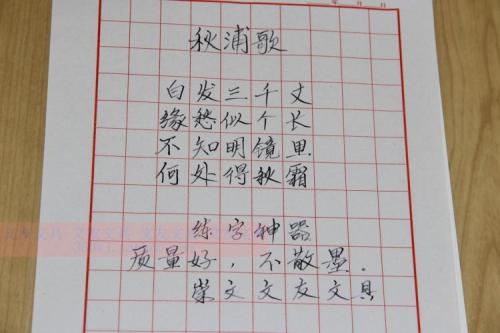 年 月 日
秋浦歌
白发三千丈
缘愁似个长
不知明镜里
何处得秋霜
练字神器
质量好，不散墨.
崇文文友文具